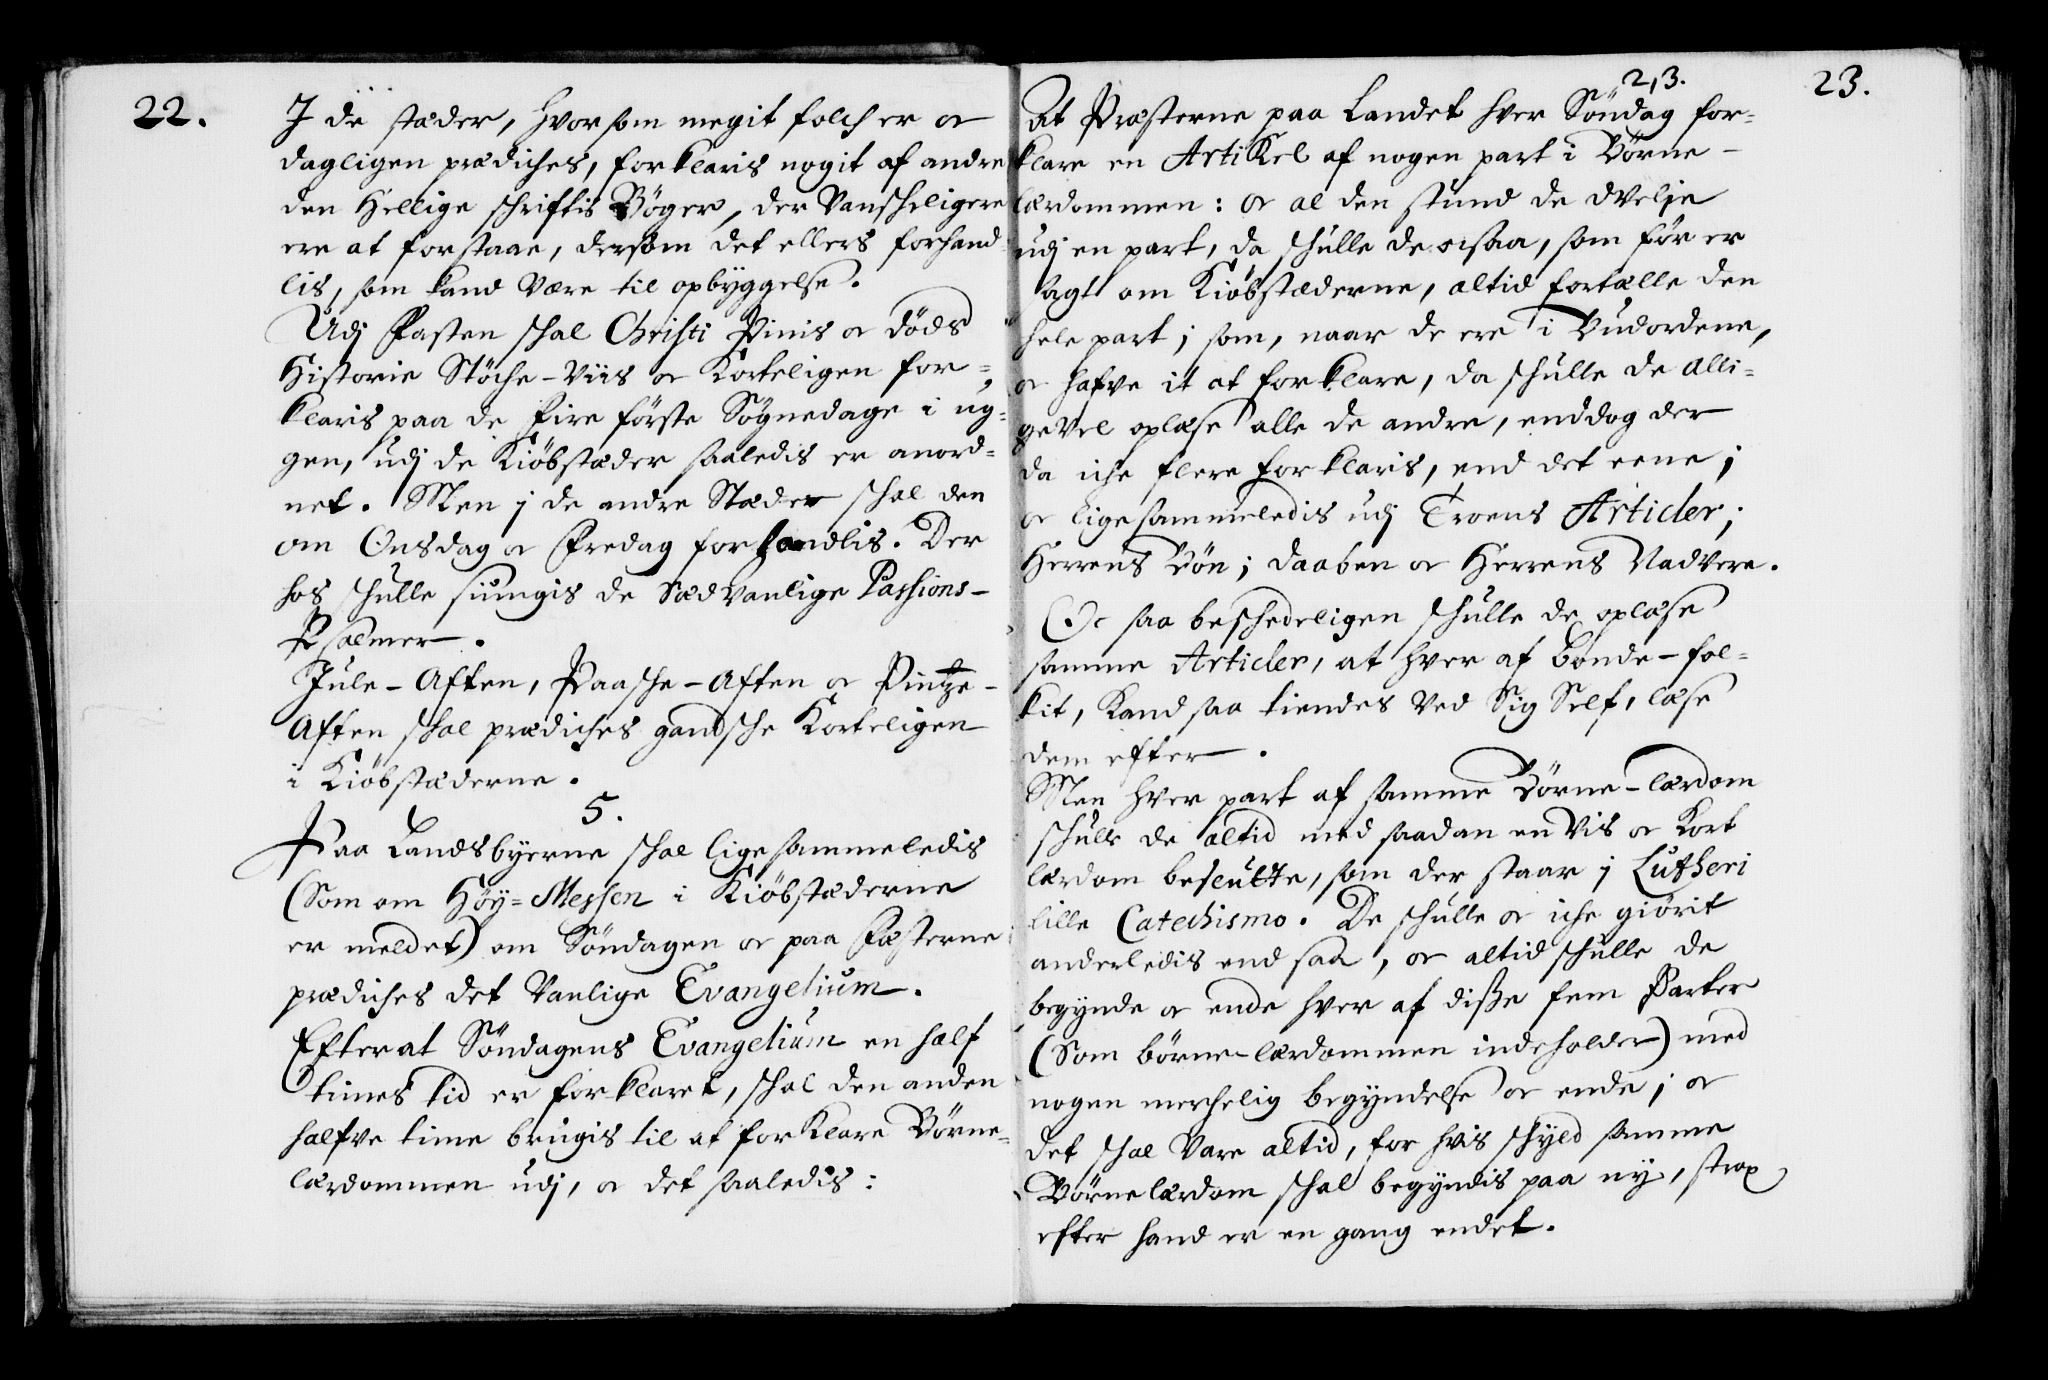 22.
J de stæder, hvorsom megit folch er oc
dagligen prædiches, forklaris nogit af andre
den Hellige schriftis Bøger, der Vanscheligere
ere at forstaae, dersom det ellers forhand-
lis, som kand være til opbyggelse.
Udj Fasten schal Christi Pinis oc Døds
Historie Støche-Viis oc Korteligen for-
klaris paa de fire første Søgnedage i ug-
gen, udj de Kiøbstæder saaledis er anord-
net. Men j de andre Stæder schal den
om Onsdag oc Fredag forhandlis. Der
hos schulle siungis de Sædvanlige Passions-
Psalmer.
Jule-Aften, Paasche-Aften oc Pintze-
Aften schal prædiches gandsche Korteligen
i Kiøbstæderne.
5.
Paa Landsbyerne schal ligesammeledis
(Som om Høy-Messen i Kiøbstæderne
er meldet) om Søndagen oc paa Festerne
prædiches det Vanlige Evangelium.
Efter at Søndagens Evangelium en half
times tid er forklaret, schal den anden
halfve time brugis til at forklare Børne-
lærdommen udj, oc det saaledis:
23.
23.
At Præsterne paa Landet hver Søndag for-
klare en Artikel af nogen part i Børne-
lærdommen: oc al den stund de dvelje
udj en part, da schulle de ocsaa, som før er
sagt om Kiøbstæderne, altid fortælle den
hele part; som, naar de ere i Budordene,
oc hafve it at forklare, da schulle de alli-
gevel oplæse alle de andre, enddog der
da iche flere forklaris, end det eene;
oc ligesammeledis udj Troens Articler;
Herrens Bøn; Daaben oc Herrens Nadvere.
Oc saa beschedeligen schulle de oplæse
samme Articler, at hver af bonde-fol-
kit, Kand saa tiendes ved Sig Self, læse
dem efter.
Men hver part af samme Børne-lærdom
schulle de altid med saadan en vis oc Kort
lærdom beslutte, som der staar j Lutheri
lille Catechismo. De schulle oc iche giørit
anderledis end saa, oc altid schulle de
begynde oc ende hver af disse fem Parter
(Som børne-lærdommen indeholder) med
nogen merchelig begyndelse oc ende; oc
det schal Vare altid, for hvis schyld samme
Børnelærdom schal begyndis paa ny, strax
efter hand er en gang endet.